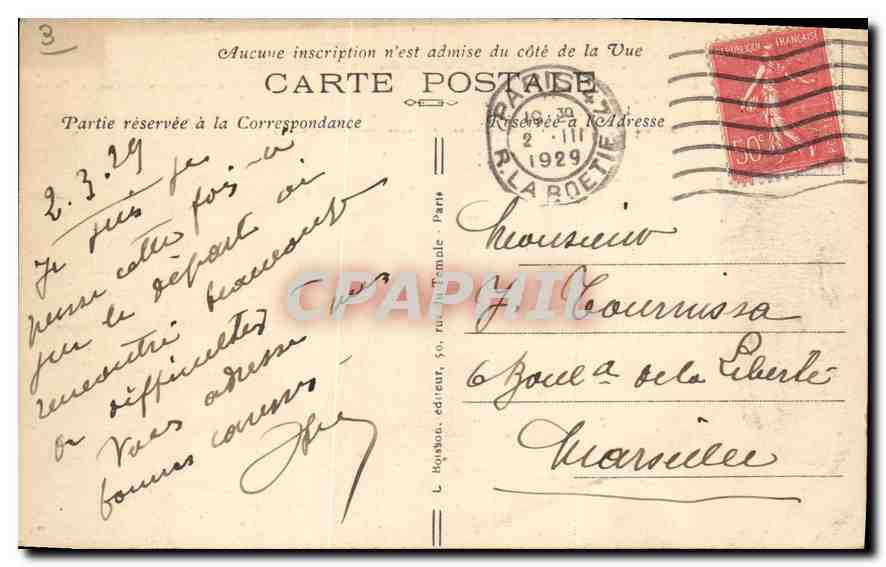 3
Aucune inscription n'est admise du côté de la Vue
CARTE POSTALE
Partie réservée à la Correspondance
Réservée à l'Adresse
PARIS 47
16 30
2 III
1929
R. LA BOETIE
REPUBLIQUE FRANÇAISE
50 c
2.3.29
Je suis
pense cette fois-ci
que le départ
rencontré beaucoup
de difficultés
Vous adresse mes
bonnes
L. Boisson, éditeur, 50, rue du Temple - Paris
Monsieur
J. Tournissa
6 Boul.d de la Liberté
Marseille
CPAPHIL